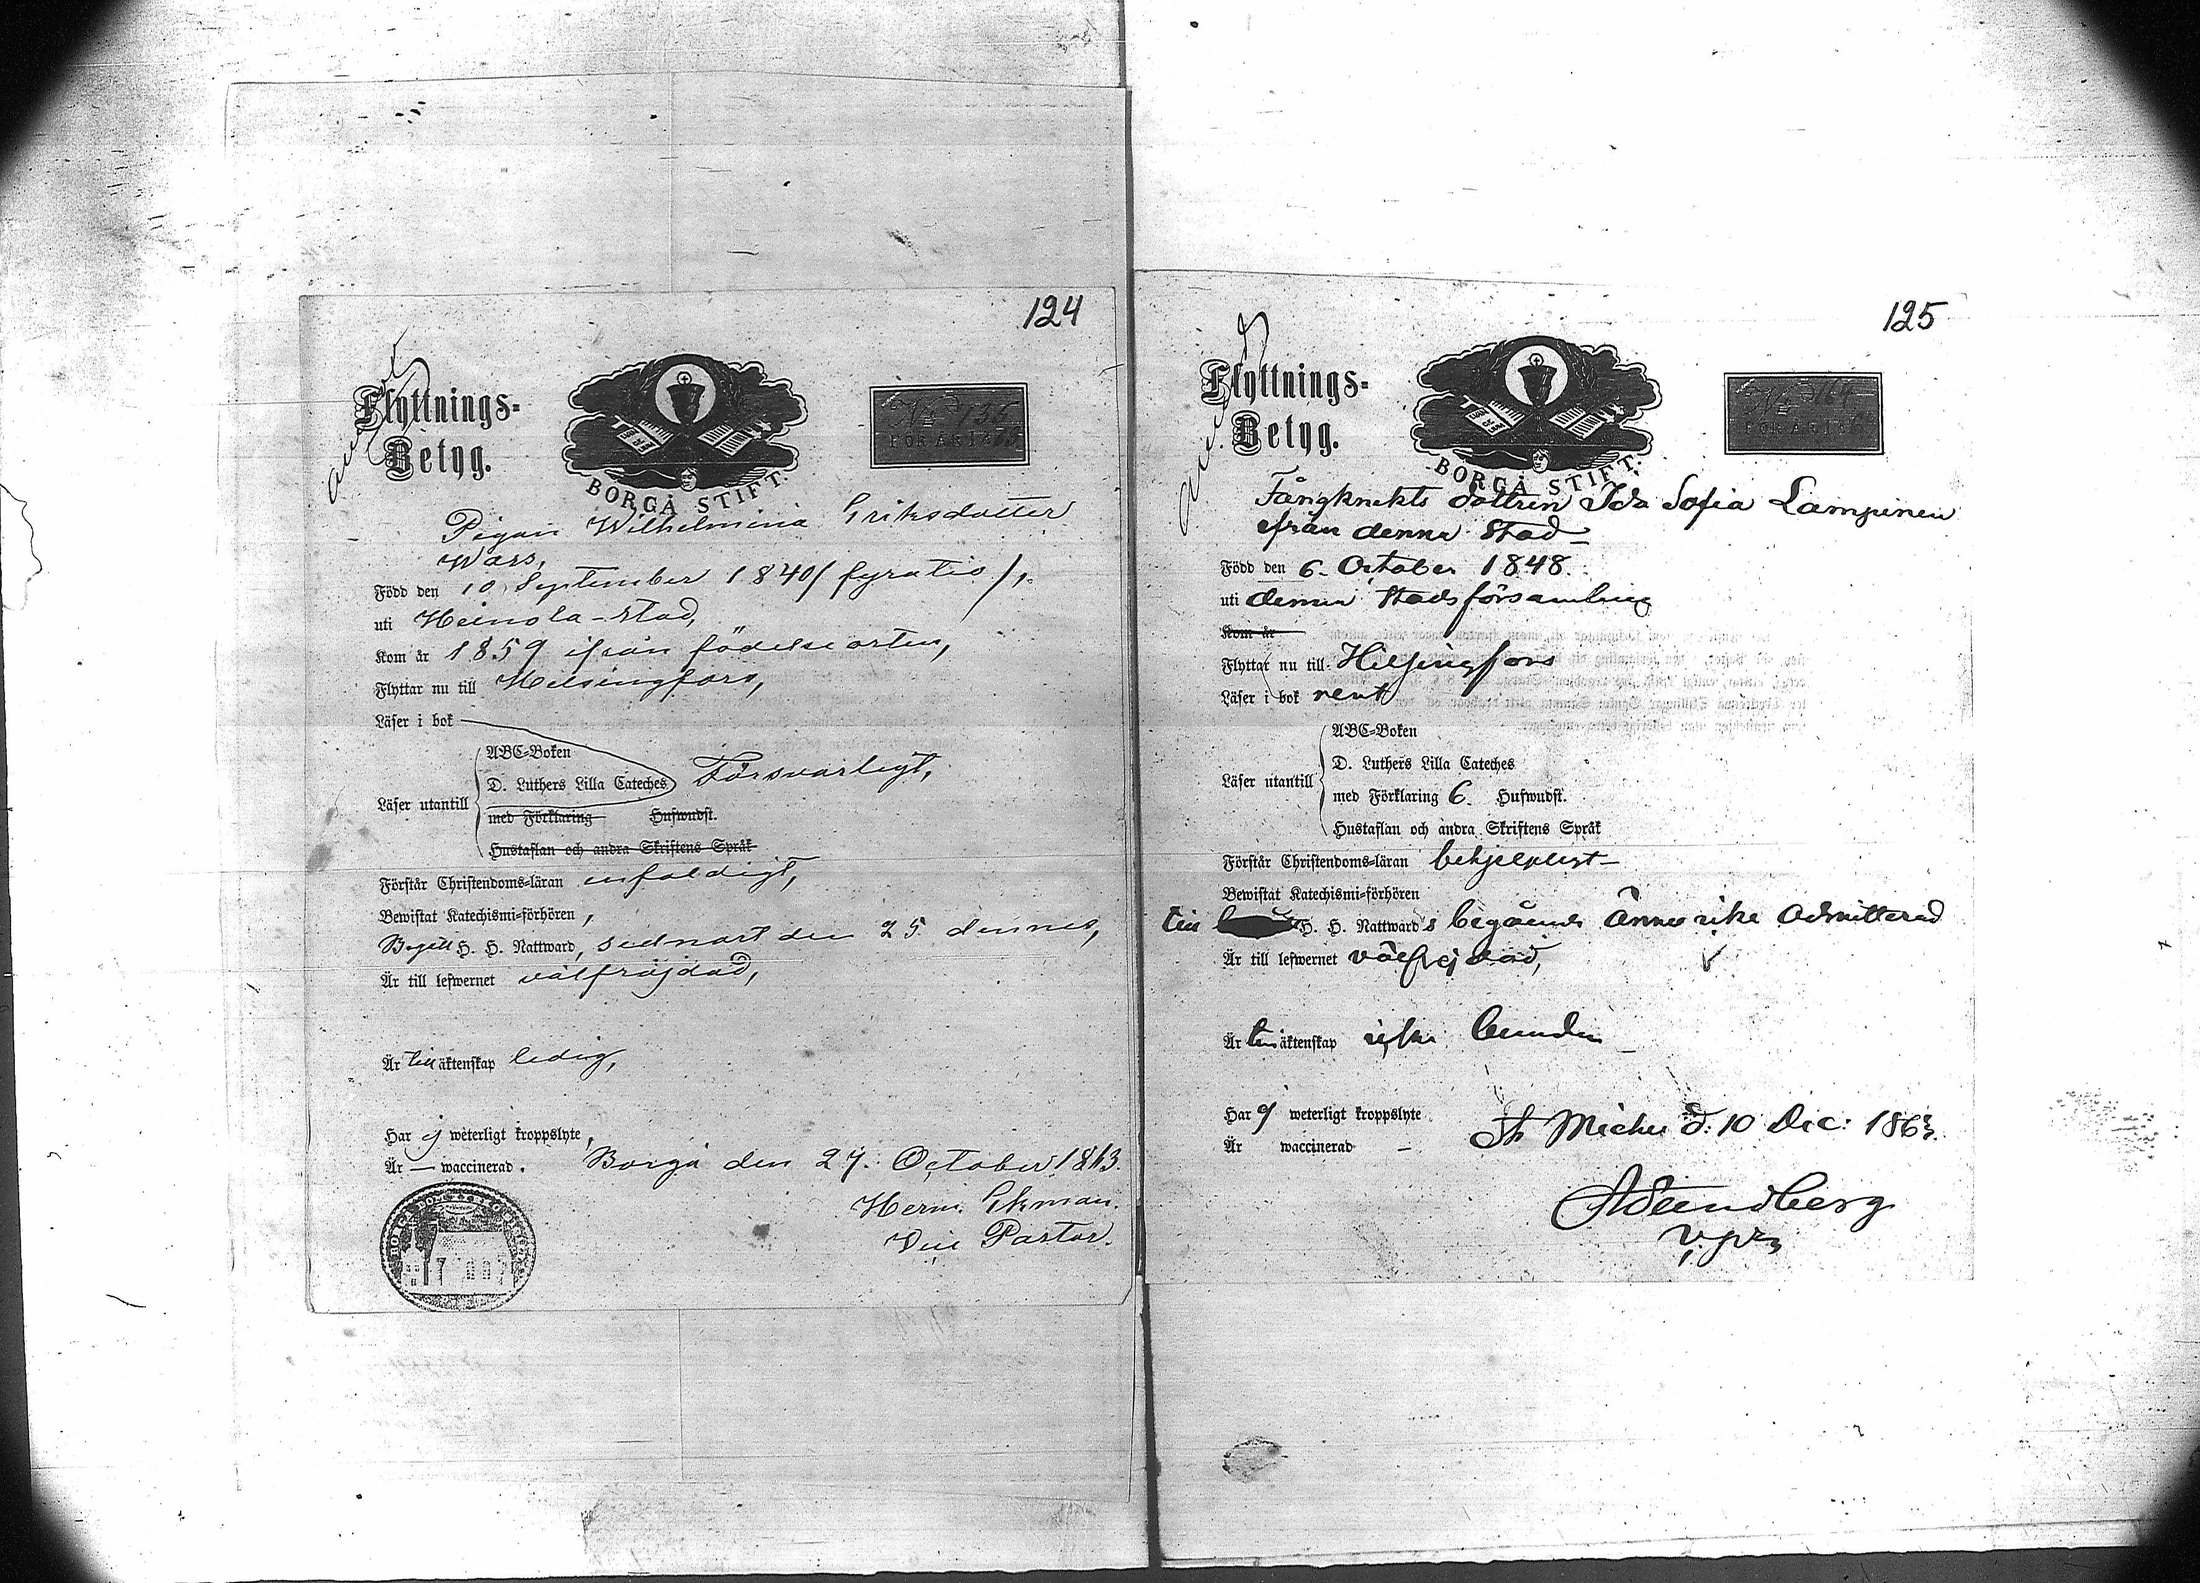 124
Flyttnings-
Betyg.
BORGÅ STIFT.
No 135
FÖR ÅR 1863
Pigan Wilhelmina Eriksdotter
Wars,
Född den 10 September 1840 (fyratio),
uti Heinola stad,
Kom år 1859 ifrån födelseorten,
Flyttar nu till Helsingfors,
Läser i bok
Läser utantill
ABC-Boken
D. Luthers Lilla Cateches Försvarligt,
med Förklaring Hufwudst.
Hustaflan och andra Skriftens Språk
Förstår Christendoms-läran enfaldigt,
Bewistat Katechismi-förhören,
Begått H. H. Nattward, sednast den 25 dennes,
Är till lefwernet välfräjdad,
Är till äktenskap ledig,
Har ej weterligt kroppslyte,
Är — waccinerad. Borgå den 27 October 1863.
Herm. Ekman.
Vice Pastor.
125
Flyttnings-
Betyg.
BORGÅ STIFT.
No 164
FÖR ÅR 186
Fångknekts dottren Ida Sofia Lampinen
från denna Stad
Född den 6 October 1848.
uti denna Stadsförsamling
Kom år
Flyttar nu till Helsingfors
Läser i bok rent
Läser utantill
ABC-Boken
D. Luthers Lilla Cateches
med Förklaring 6. Hufwudst.
Hustaflan och andra Skriftens Språk
Förstår Christendoms-läran behjelpligt
Bewistat Katechismi-förhören
till H. H. Nattwards begående ännu icke admitterad
Är till lefwernet välfrejdad,
Är till äktenskap icke bunden
Har ej weterligt kroppslyte
Är waccinerad — St Michel d. 10 Dec: 1863.
A Sundberg